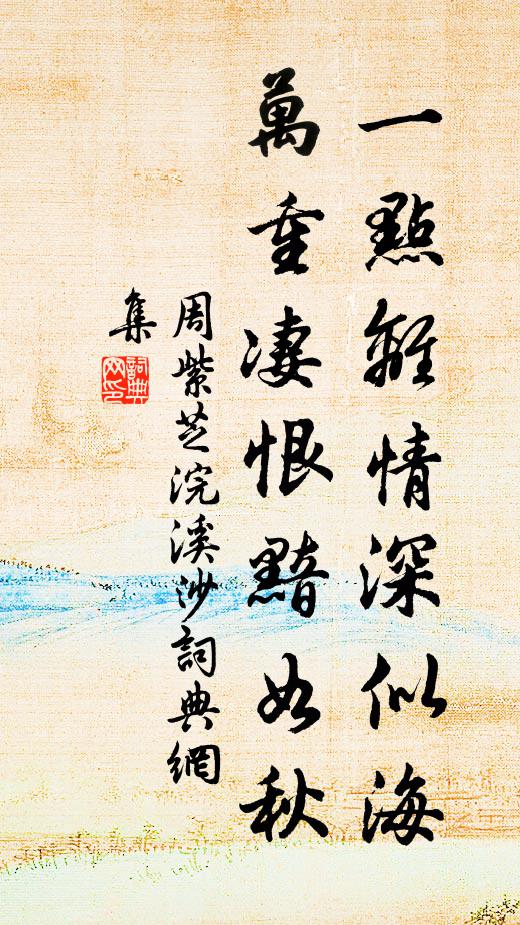 一點離情深似海
萬重淒恨黯如秋
周紫芝浣溪沙詞典網
集
詞典
网印